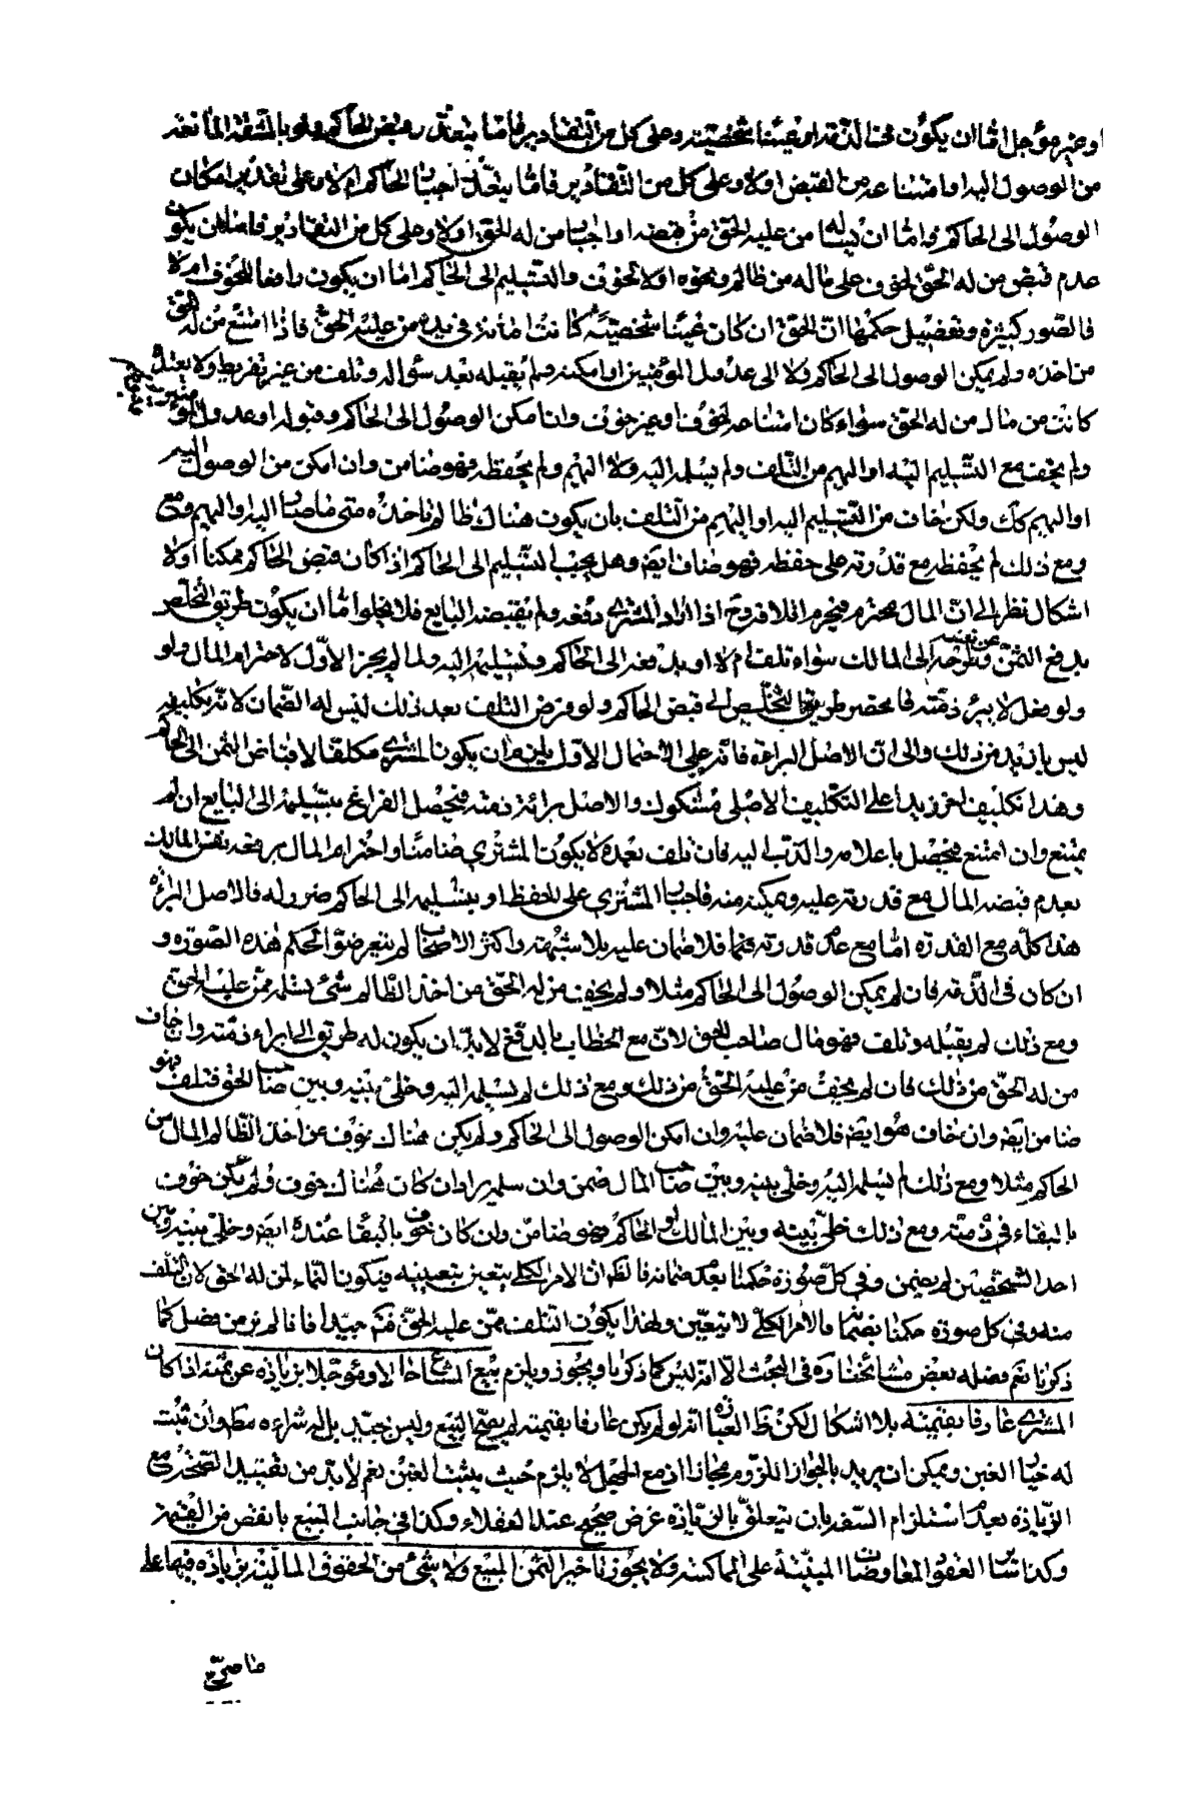 او غير مؤجل اما ان يكون في الذمة او عينا شخصيته وعلى كل من التقادير فاما يتعذر قبض الحاكم ولو بالمشقة المانعة
من الوصول اليه او امتناعه من القبض اولا وعلى كل من التقادير فاما يتعذر اجبار الحاكم ام لا وعلى تقدير امكان
الوصول الى الحاكم فاما ان يسئله من عليه الحق من قبضه او اجبار من له الحق اولا وعلى كل من التقادير فاما ان يكون
عدم قبض من له الحق لخوف على ماله من ظالم ونحوه او لا لخوف والتسليم الى الحاكم اما ان يكون رافعا للخوف ام لا
فالصور كثيرة وتفصيل حكمها ان الحق ان كان عينا شخصية كانت امانة في يد من عليه الحق فاذا امتنع من له الحق
من اخذه ولم يمكن الوصول الى الحاكم ولا الى عدول المؤمنين او امكنه ولم يقبله بعد سؤاله وتلف من غير تفريط ولا تعد
كانت من مال من له الحق سواء كان امتناعه لخوف او غير خوف وان امكن الوصول الى الحاكم وقبوله او عدول المؤمنين
ولم يخف مع التسليم اليه او اليهم من التلف ولم يسلمه اليه ولا اليهم ولم يحفظه فهو ضامن وان امكن من الوصول اليه
او اليهم كك ولكن خاف من التسليم اليه او اليهم من التلف بان يكون هناك ظالم ياخذه متى ما صار اليه او اليهم ومع
ومع ذلك لم يحفظه مع قدرته على حفظه فهو ضامن ايضا وهل يجب التسليم الى الحاكم اذا كان قبض الحاكم ممكنا اولا
اشكال نظر الى ان المال محترم فيحرم اتلافه وح اذا اراد المشتري دفعه ولم يقبضه البايع فلا يخلوا اما ان يكون طريق التخلص
بدفع الثمن عن نفسه وطرحه الى المالك سواء تلف ام لا او يدفعه الى الحاكم وتسليمه اليه ولما لم يجز الاول لاحترام المال ولو
ولو فعل لا يبرء ذمته فانحصر طريق التخلص الى قبض الحاكم ولو فرض التلف بعد ذلك ليس له الضمان لانه تكليفه
ليس بازيد من ذلك والى ان الاصل البرائة فانه على الاحتمال الاول يلزم ان يكون المشتري مكلفا لاقباض الثمن الى الحاكم
وهذا تكليف اخر زيدا على التكليف الاصلي مشكوك والاصل برائة ذمته فيحصل الفراغ بتسليمه الى البايع ان لم
يمتنع وان امتنع فيحصل باعلامه والذب اليه فان تلف بعده لا يكون المشتري ضامنا واحترام المال مرفعه نفس المالك
بعدم قبضه المال مع قدرته عليه وتمكينه منه فاجبار المشتري على الحفظ او بتسليمه الى الحاكم ضرر له فالاصل البرائة
هذا كله مع القدرة اما مع عدم قدرته فيها فلا ضمان عليه بلا شبهة واكثر الاصحاب لم يتعرضوا لحكم هذه الصورة و
ان كان في الذمة فان لم يمكن الوصول الى الحاكم مثلا ولم يخف من له الحق من اخذ الظالم شئ يسلمه ممن عليه الحق
ومع ذلك لم يقبله وتلف فهو مال صاحب الحق لان مع الخطاب بالدفع لا بد ان يكون له طريق الى ابراء ذمته وان خاف
من له الحق من ذلك فان لم يخف من عليه الحق من ذلك ومع ذلك لم يسلمه اليه وخلى بينه وبين صاحب الحق فتلف فهو
ضامن ايضا وان خاف هو ايضا فلا ضمان عليه وان امكن الوصول الى الحاكم ولم يكن هناك خوف عن اخذ الظالم المال من
الحاكم مثلا ومع ذلك لم يسلمه اليه وخلى بينه وبين صاحب المال ضمن وان سلمه برا وان كان هناك خوف ولم يكن خوف
بالبقاء في ذمته ومع ذلك خلى بينه وبين المالك او الحاكم فهو ضامن وان كان خوف بالبقاء عنده ايضا وخلى بينه وبين
احد الشخصين لم يضمن وفي كل صورة حكمنا بعدم ضمانه فالظ ان الامر الكلي يتعين بتعيينه فيكون النماء لمن له الحق لان التلف
منه وفي كل صورة حكمنا بضمانه فالامر الكلي لا يتعين ولهذا يكون التلف ممن عليه الحق فتم جيدا فانا لم نر من فصل كما
ذكرنا نعم فصله بعض مشائخنا ره في البحث الا انه ليس كما ذكرنا ويجوز ويلزم بيع المتاع حالا ومؤجلا بزيادة عن ثمنه اذا كان
المشتري عارفا بقيمته بلا اشكال لكن ظ العبارة انه لو لم يكن عارفا بقيمته لم يصح البيع وليس جيد بل له شراءه مط وان ثبت
له خيار الغبن ويمكن ان يريد بالجواز اللزوم مجازا اذ مع الجهل لا يلزم حيث يثبت الغبن نعم لا بد من تقييد الصحة مع
الزيادة بعدم استلزام السفه بان يتعلق بالزيادة غرض صحيح عند العقلاء وكذا في جانب البيع بانقص من القيمة
وكذا ساير العقود المعاوضات المبنية على المماكسة ولا يجوز تاخير الثمن المبيع ولا شئ من الحقوق المالية بزيادة فيها على